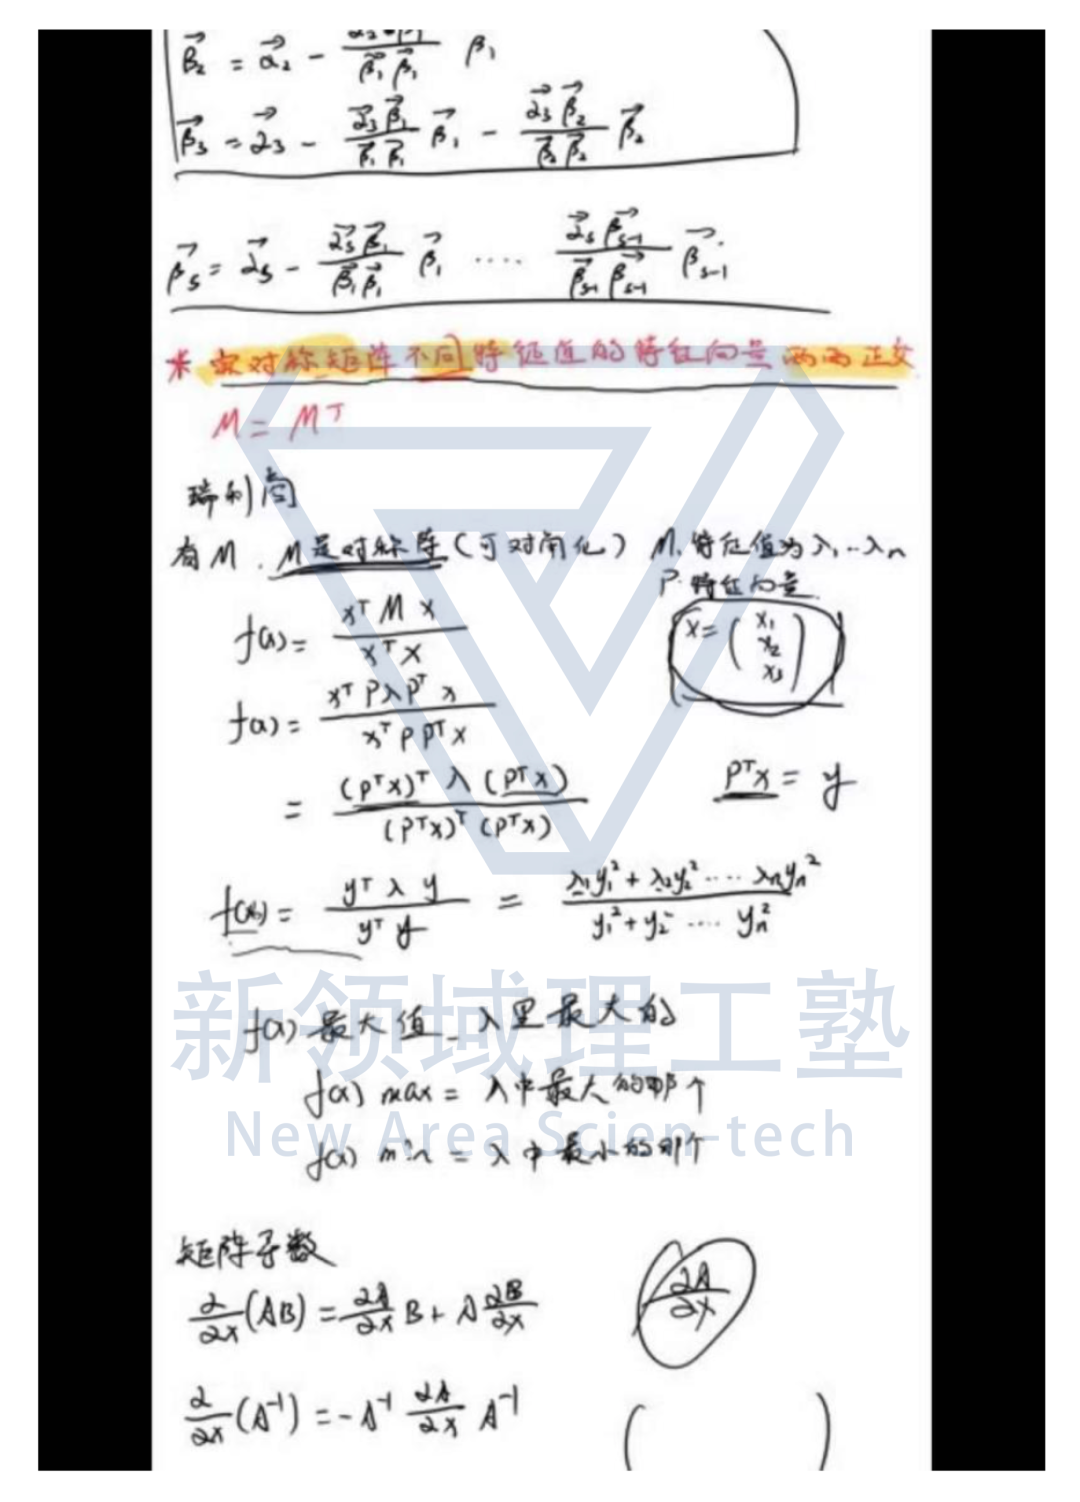 β⃗₂ = α⃗₂ − α⃗₂·β⃗₁ / β⃗₁β⃗₁ β₁
β⃗₃ = α⃗₃ − α⃗₃β⃗₁ / β⃗₁β⃗₁ β⃗₁ − α⃗₃β⃗₂ / β⃗₂β⃗₂ β⃗₂
β⃗s = α⃗s − α⃗sβ⃗₁ / β⃗₁β⃗₁ β⃗₁ .... α⃗sβ⃗s-1 / β⃗s-1β⃗s-1 β⃗s-1
* 实对称矩阵不同特征值的特征向量两两正交
M = Mᵀ
瑞利商
有M. M是对称阵(可对角化) M. 特征值为λ₁...λn
P. 特征向量.
f(x) = xᵀMx / xᵀx
x = (x₁ x₂ x₃)
f(x) = xᵀPλPᵀx / xᵀPPᵀx
= (Pᵀx)ᵀλ(Pᵀx) / (Pᵀx)ᵀ(Pᵀx)
Pᵀx = y
f(x) = yᵀλy / yᵀy = λ₁y₁² + λ₂y₂² .... λnyn² / y₁² + y₂² .... yn²
新领域理工塾
f(x) 最大值_λ里最大的
f(x) max = λ中最大的那个
New Area Scien-tech
f(x) min = λ中最小的那个
矩阵导数
∂/∂x (AB) = ∂A/∂x B + A ∂B/∂x
∂A/∂x
∂/∂x (A⁻¹) = −A⁻¹ ∂A/∂x A⁻¹
( )